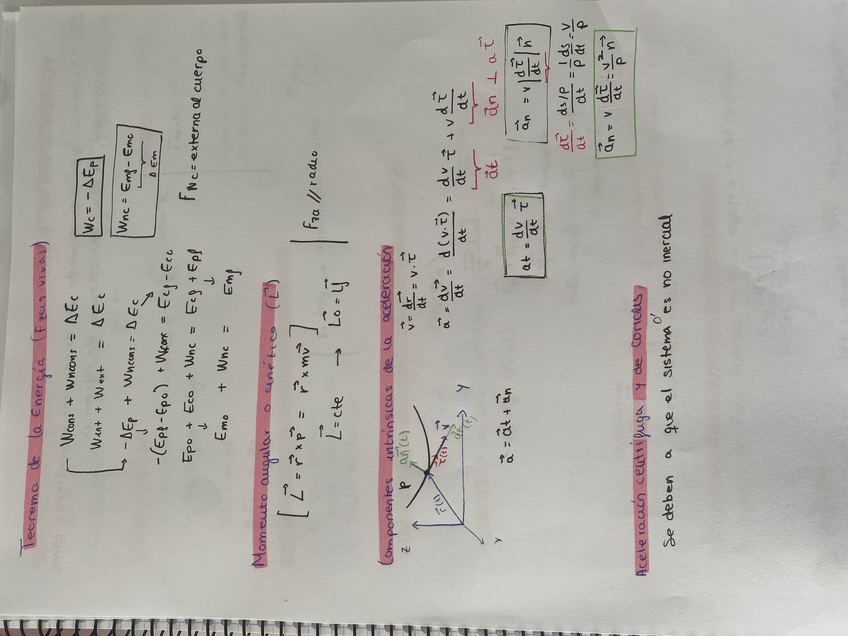 Teorema de la Energía (Fzas vivas)
Wcons + Wncons = ΔEc
Wint + Wext = ΔEc
-ΔEp + Wncons = ΔEc
-(Epf - Epo) + Wncons = Ecf - Eco
Epo + Eco + Wnc = Ecf + Epf
Emo + Wnc = Emf
Wc = -ΔEp
Wnc = Emf - Emo
ΔEm
FNC = external al cuerpo
Momento angular o cinético (L⃗)
[ L⃗ = r⃗ x p⃗ = r⃗ x mv⃗ ]
L⃗ = cte → L⃗o = L⃗f
Fza // radio
Componentes intrínsicas de la aceleración
z
P
a⃗n(t)
τ⃗(t)
v
a⃗t(t)
r⃗(t)
y
x
a⃗ = a⃗t + a⃗n
v⃗ = dr⃗/dt = v · τ⃗
a⃗ = dv⃗/dt = d(v·τ⃗)/dt = dv/dt τ⃗ + v dτ⃗/dt
a⃗t
a⃗n ⊥ a τ⃗
at = dv/dt τ⃗
a⃗n = v |dτ⃗/dt| n⃗
dτ⃗/dt = ds/ρ/dt = 1/ρ ds/dt = v/ρ
a⃗n = v dτ⃗/dt = v²/ρ n⃗
Aceleración centrífuga y de Coriolis
Se deben a que el sistema O' es no inercial